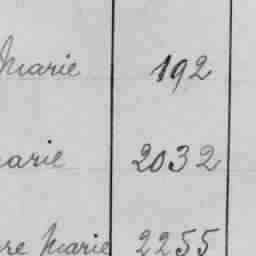 Marie 192
arie 2032
re Marie 2255